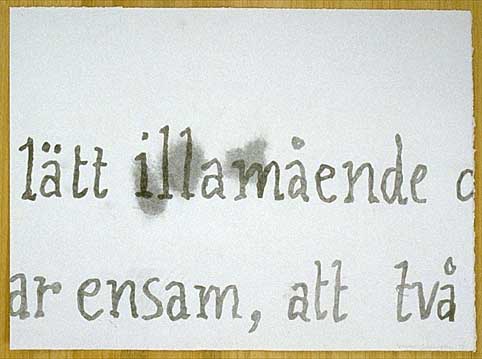 lätt illamående
ar ensam, att två